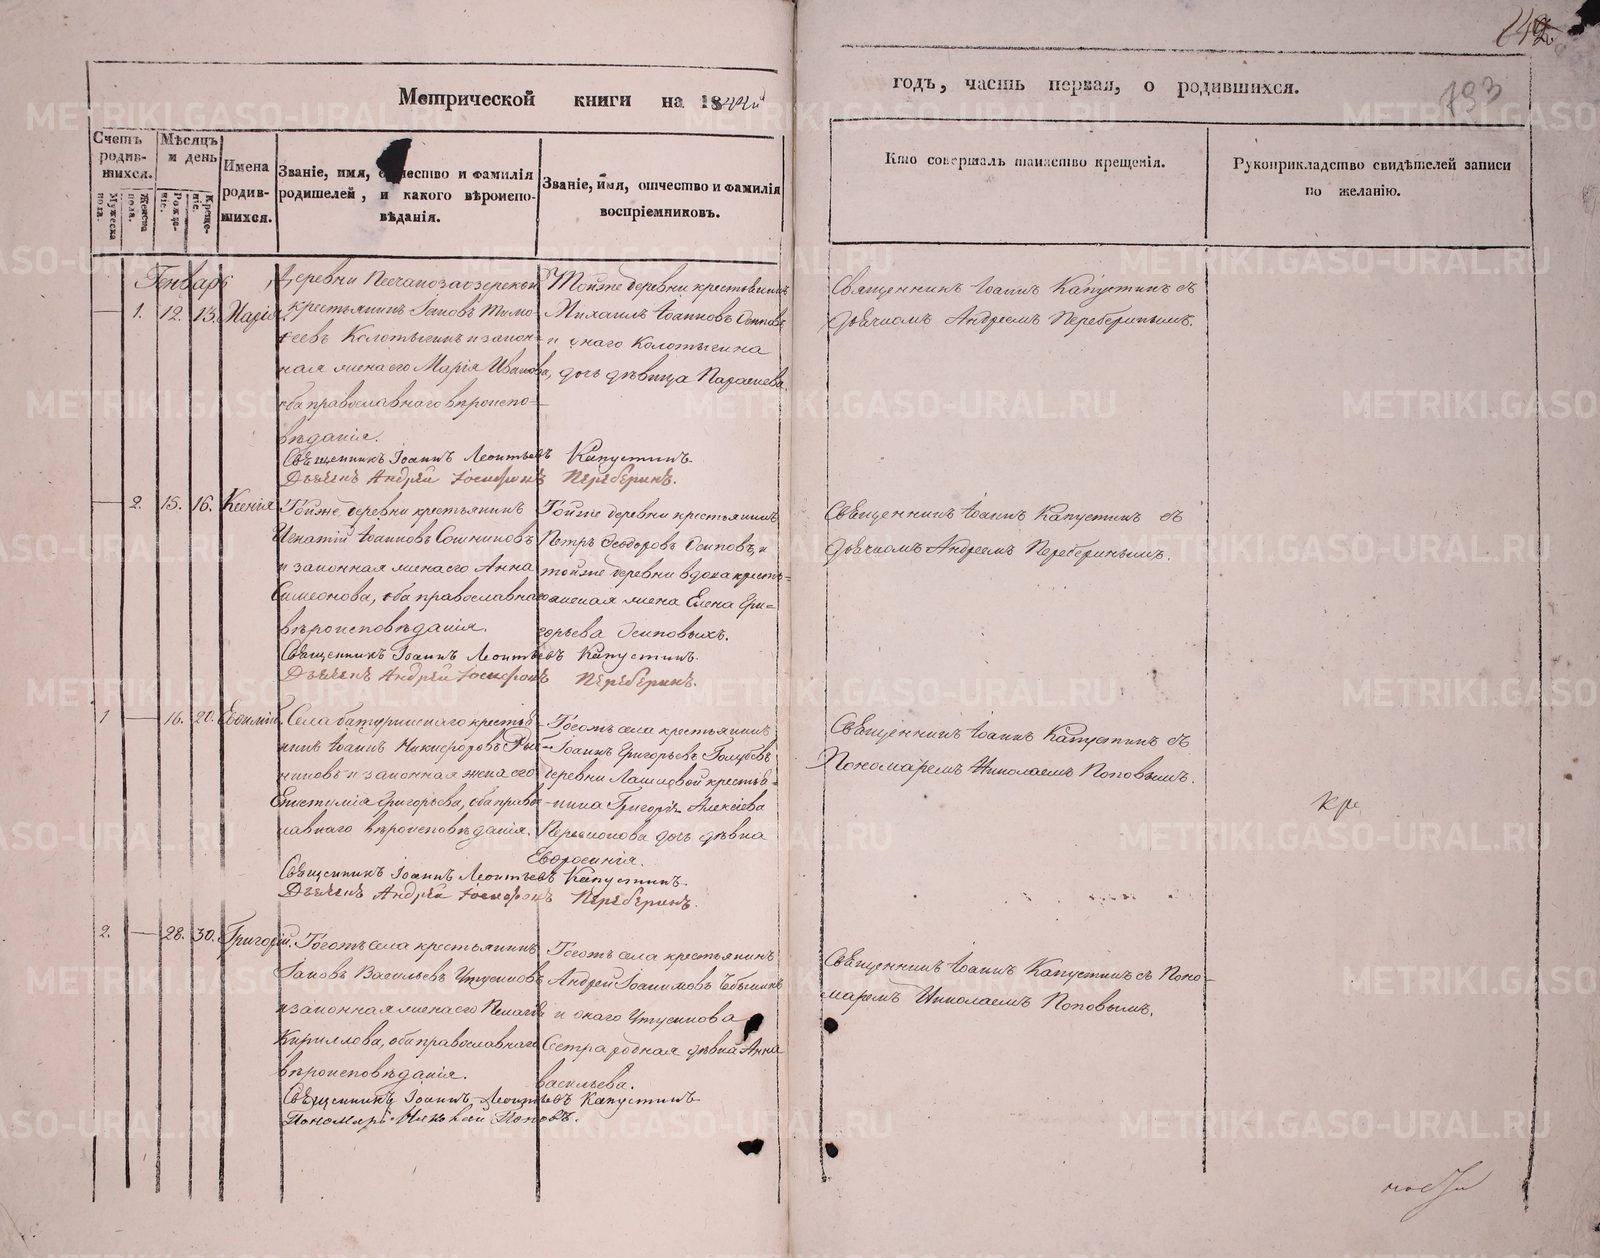 142
793
Метрической книги на 1844й
годъ, часть первая, о родившихся.
Счетъ родив-шихся.
Мужеска пола.
Женска пола.
Мѣсяцъ и день
Рожде-ніе.
Креще-ніе.
Имена родив-шихся.
Званіе, имя, отчество и фамилія
родителей, и какого вѣроиспо-
вѣданія.
Званіе, имя, отчество и фамилія
воспріемниковъ.
Кто совершалъ таинство крещенія.
Рукоприкладство свидѣтелей записи
по желанію.
Генварь
— 1. 12. 13. Марія
Деревни Песчаноозерской
крестьянинъ Іаковъ Тимо-
ѳеевъ Колотыгинъ и закон-
ная жена его Марія Иванова,
оба православнаго вѣроиспо-
вѣданія.
Тойже деревни крестьянинъ
Михаилъ Іоанновъ Осиповъ
и онаго Колотыгина
дочь дѣвица Параскева.
Священникъ Іоаннъ Капустинъ съ
Дьячкомъ Андреемъ Переберинымъ.
Священникъ Іоаннъ Леонтьевъ Капустинъ.
Дьячекъ Андрей Іосифовъ Переберинъ.
— 2. 15. 16. Ксенія
Тойже деревни крестьянинъ
Игнатій Іоанновъ Сошниковъ
и законная жена его Анна
Симеонова, оба православнаго
вѣроисповѣданія.
Тойже деревни крестьянинъ
Петръ Ѳеодоровъ Осиповъ и
тойже деревни вдова кресть-
янская жена Елена Гри-
горьева Осиповыхъ.
Священникъ Іоаннъ Капустинъ съ
Дьячкомъ Андреемъ Переберинымъ.
Священникъ Іоаннъ Леонтьевъ Капустинъ.
Дьячекъ Андрей Іосифовъ Переберинъ.
1 — 16. 20. Евѳимій.
Села Батуринскаго крестья-
нинъ Іоаннъ Никифоровъ
и законная жена его
Епистимія Григорьева, оба правос-
лавнаго вѣроисповѣданія.
Тогожъ села крестьянинъ
Іоаннъ Григорьевъ Голубевъ
деревни крестья-
нина Григорія Алексѣева
дочь дѣвка
Евфросинія.
Священникъ Іоаннъ Капустинъ съ
Пономаремъ Николаемъ Поповымъ.
Священникъ Іоаннъ Леонтьевъ Капустинъ.
Дьячекъ Андрей Іосифовъ Переберинъ.
2. — 28. 30. Григорій.
Тогожъ села крестьянинъ
Іаковъ Васильевъ Утусиковъ
и законная жена его Пелагія
Кириллова, оба православнаго
вѣроисповѣданія.
Тогожъ села крестьянинъ
Андрей Іоакимовъ
и онаго Утусикова
Сестра родная дѣвка Анна
Васильева.
Священникъ Іоаннъ Капустинъ съ Поно-
маремъ Николаемъ Поповымъ.
Священникъ Іоаннъ Леонтьевъ Капустинъ
Пономарь Николай Поповъ.
METRIKI.GASO-URAL.RU